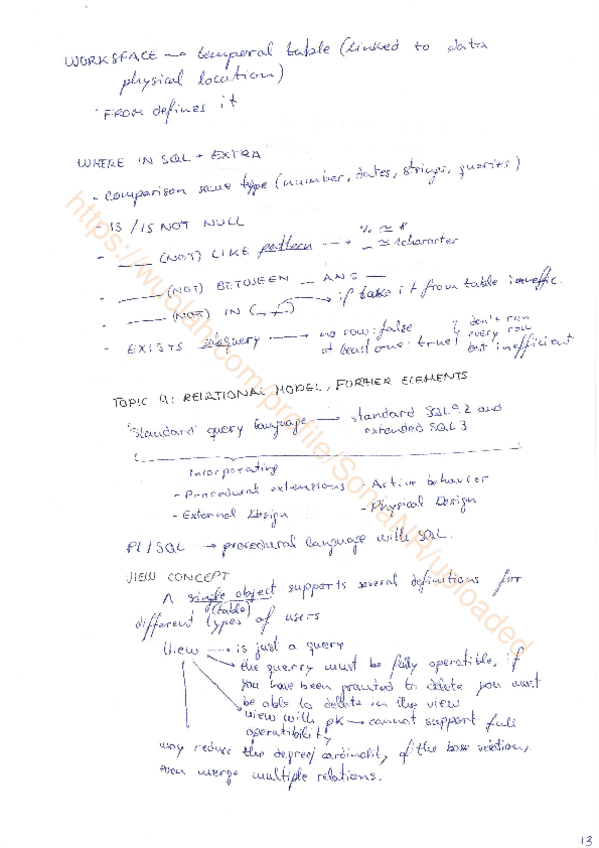 WORKSPACE → temporal table (linked to data
physical location)
FROM defines it
WHERE IN SQL + EXTRA
- comparison same type (number, dates, strings, queries)
- IS / IS NOT NULL
- ___ (NOT) LIKE pattern → % ≈ *
_ ≈ 1character
- ___ (NOT) BETWEEN __ AND __
- ___ (NOT) IN (_,_) → if take it from table ineffic.
- EXISTS subquery → no row: false
at least one: true
don't run
every row
but inefficient
TOPIC 4: RELATIONAL MODEL, FURTHER ELEMENTS
'Standard' query language → standard SQL92 and
extended SQL3
Incorporating
- Procedural extensions - Active behavior
- External Design - Physical Design
Pl/SQL → procedural language with SQL.
VIEW CONCEPT
A single object supports several definitions for
(table)
different types of users
View → is just a query
the querry must be fully operatible, if
you have been granted to delete you must
be able to delete in the view
view with pk → cannot support full
operatibility
may reduce the degree/cardinality of the base relation,
then merge multiple relations.
13
https://wuolah.com/profile/SoniaNR/uploaded